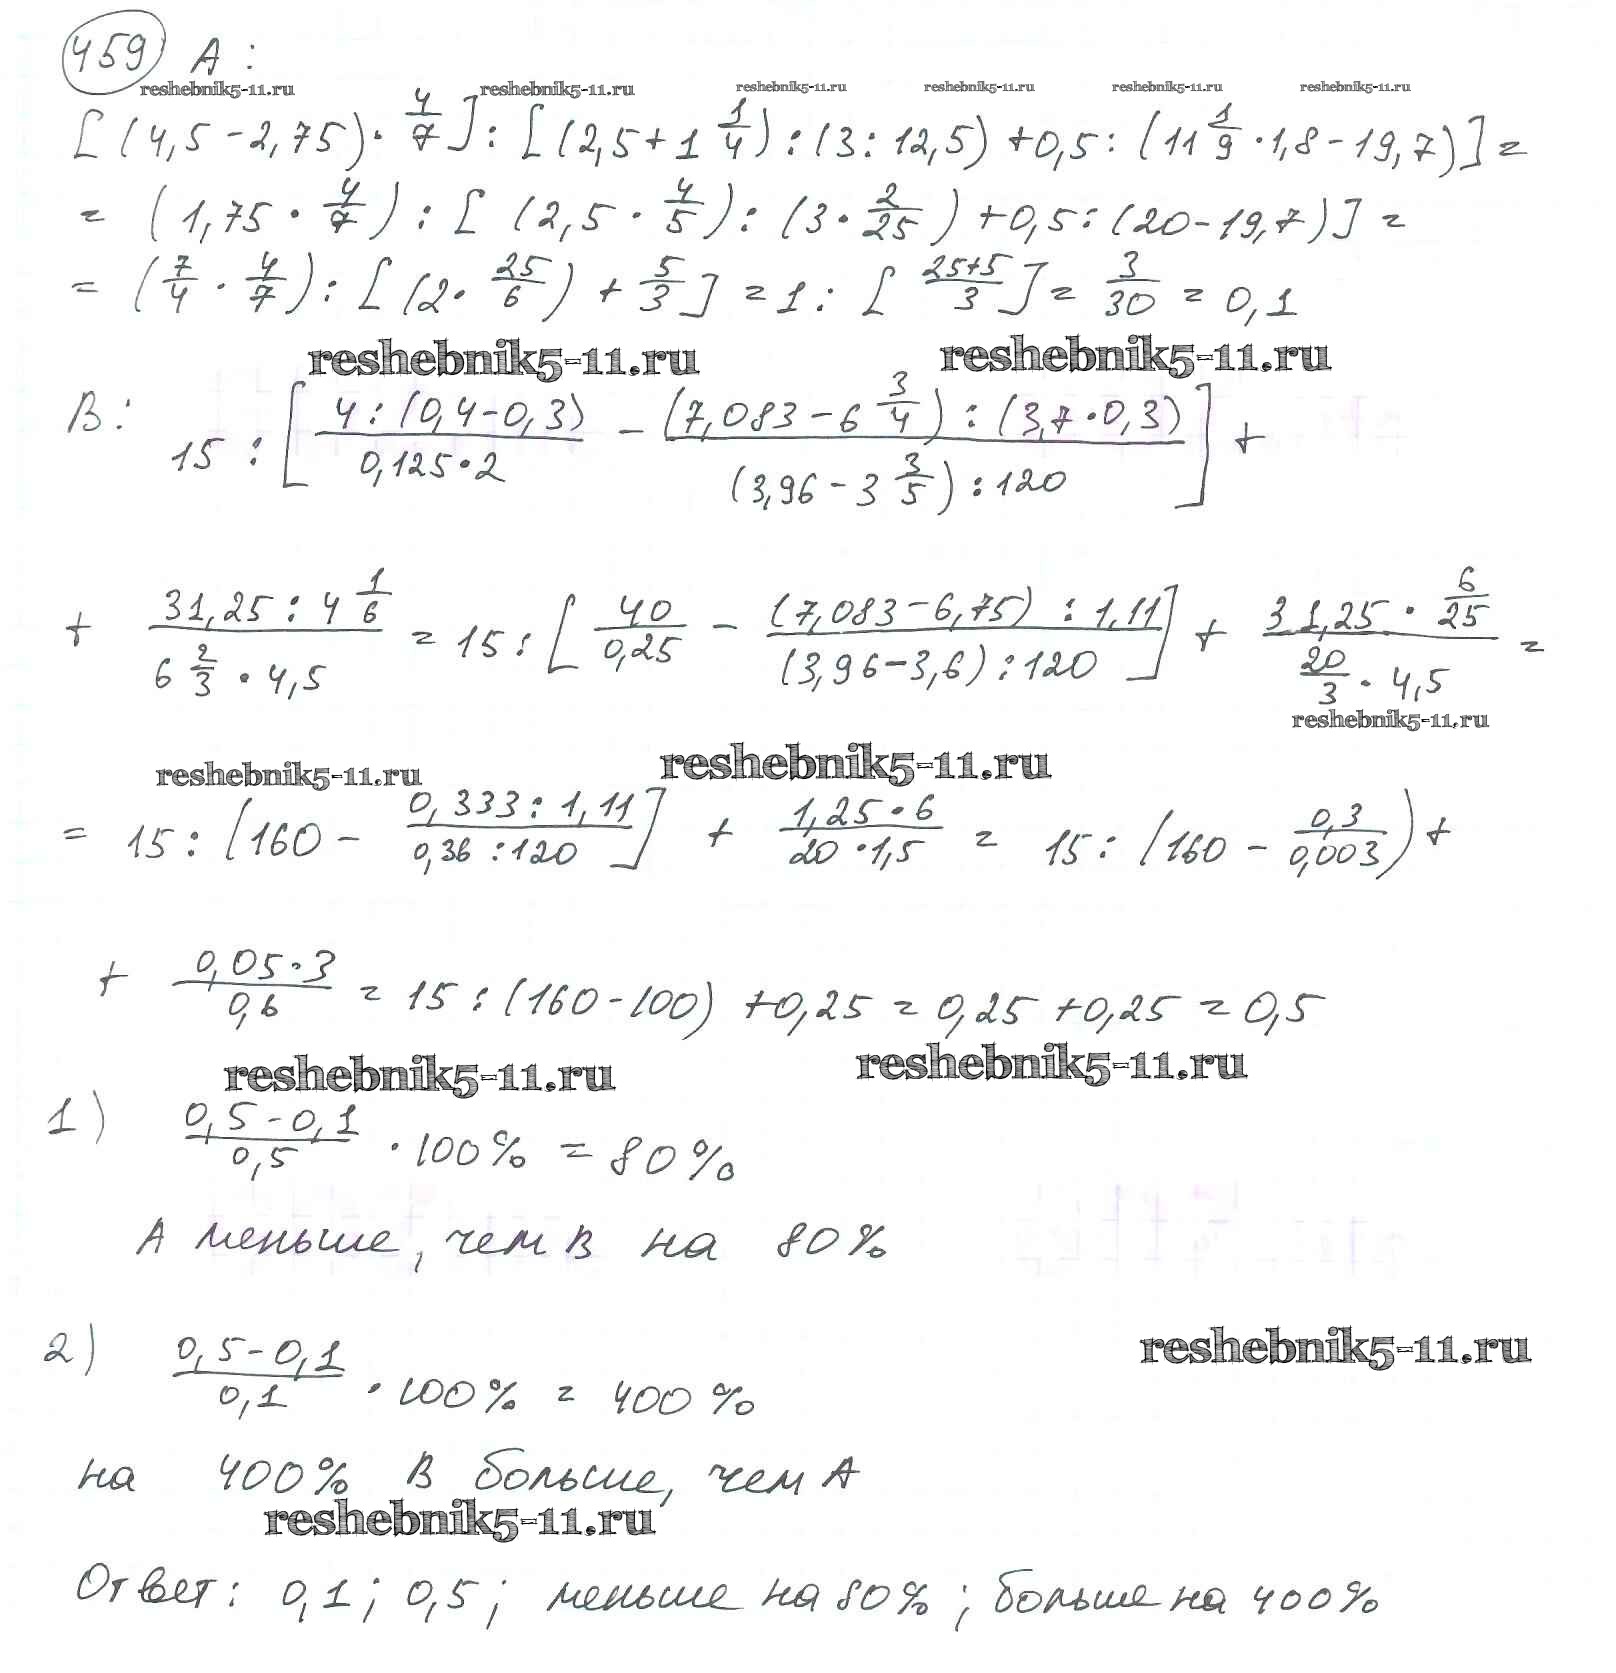 459 А:
reshebnik5-11.ru reshebnik5-11.ru reshebnik5-11.ru reshebnik5-11.ru reshebnik5-11.ru reshebnik5-11.ru
[(4,5-2,75)·4/7]:[(2,5+1 1/4):(3:12,5)+0,5:(11 1/9·1,8-19,7)]=
=(1,75·4/7):[(2,5·4/5):(3·2/25)+0,5:(20-19,7)]=
=(7/4·4/7):[(2·25/6)+5/3]=1:[(25+5)/3]=3/30=0,1
reshebnik5-11.ru reshebnik5-11.ru
В: 15:[(4:(0,4-0,3))/(0,125·2) - ((7,083-6 3/4):(3,7·0,3))/((3,96-3 3/5):120)]+
+ (31,25:4 1/6)/(6 2/3·4,5) = 15:[40/0,25 - ((7,083-6,75):1,11)/((3,96-3,6):120)] + (31,25·6/25)/(20/3·4,5) =
reshebnik5-11.ru
reshebnik5-11.ru reshebnik5-11.ru
= 15:(160 - (0,333:1,11)/(0,36:120)] + (1,25·6)/(20·1,5) = 15:(160 - 0,3/0,003)+
+ (0,05·3)/0,6 = 15:(160-100)+0,25=0,25+0,25=0,5
reshebnik5-11.ru reshebnik5-11.ru
1) (0,5-0,1)/0,5 ·100% = 80%
А меньше, чем В на 80%
2) (0,5-0,1)/0,1 ·100% = 400%
reshebnik5-11.ru
на 400% В больше, чем А
reshebnik5-11.ru
Ответ: 0,1; 0,5; меньше на 80%; больше на 400%